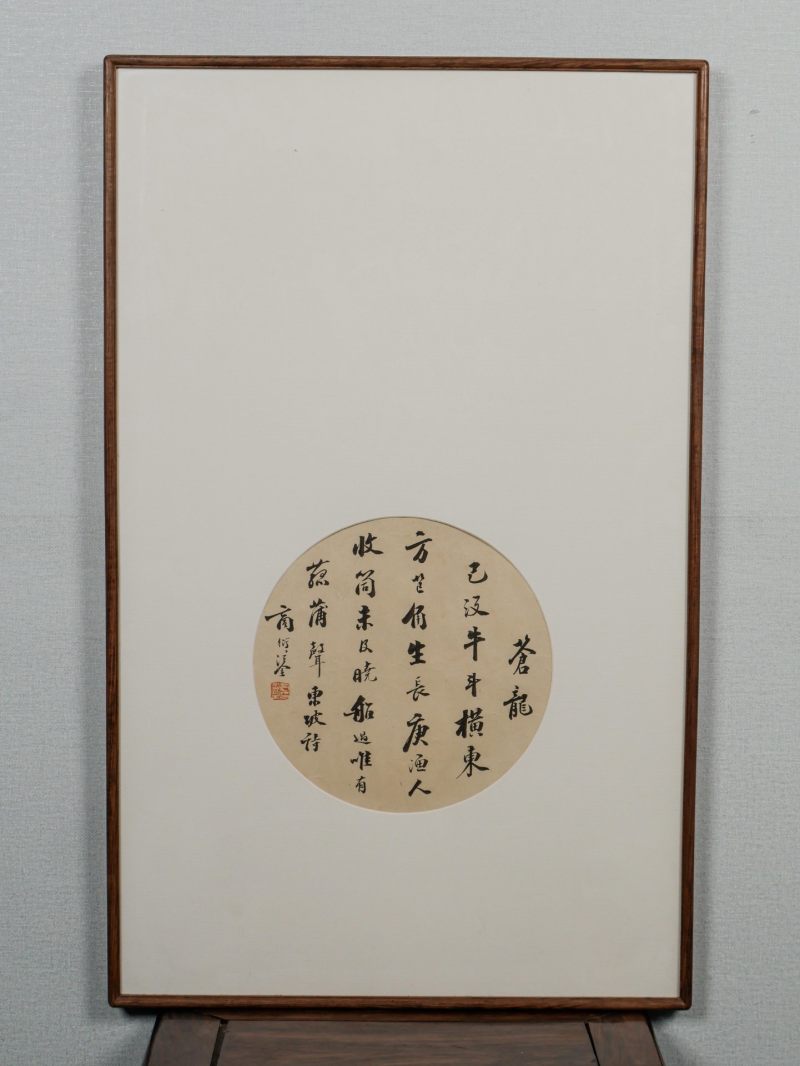 蒼龍
已沒牛斗橫東
方芒角生長庚漁人
收筒未及曉船過唯有
菰蒲聲東坡詩
商衍鎏